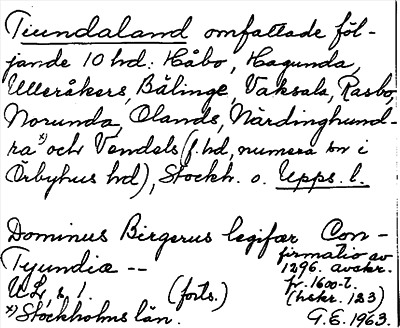 Tiundaland omfattade föl-
jande 10 hd: Håbo, Hagunda,
Ulleråkers, Bälinge, Vaksala, Rasbo,
Norunda, Olands, Närdinghund-
ra x) och Vendels (f. hd, numera sn i
Örbyhus hd), Stockh. o. Upps. l.
Dominus Birgerus legifær Con-
firmatio av
Tyundiæ -- 1296. avskr.
fr. 1600-t.
UL, s 1. (forts.) (hskr. 123)
x) Stockholms län. G.E. 1963.